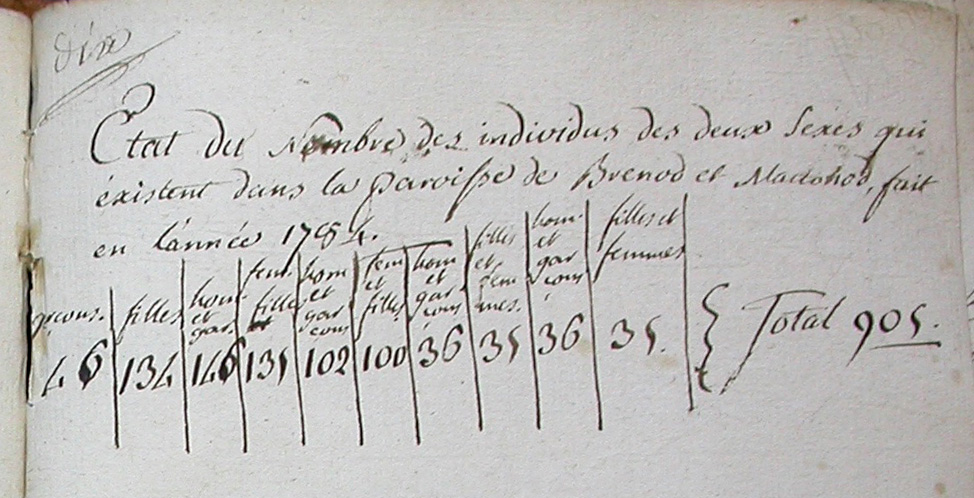 État du Nombre des individus des deux sexes qui
éxistent dans la paroisse de Brenod et Maconod, fait
en l'année 1784.
garcons. | filles | hom et gar. | fem. et filles | hom et gar cons | fem et filles | hom et gar cons | filles et fem mes. | hom. et gar cons | filles et femmes
146 | 134 | 146 | 135 | 102 | 100 | 36 | 35 | 36 | 35. } Total 905.